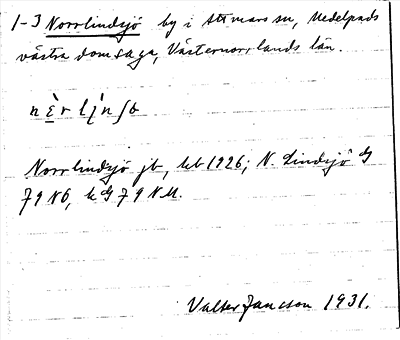 1-3 Norrlindsjö by i Attmars sn, Medelpads
västra domsaga, Västernorrlands län.
Norrlindsjö jb, kb 1926; N. Lindsjö G
79 NÖ, k G 79 NM.
Valter Jansson 1931.